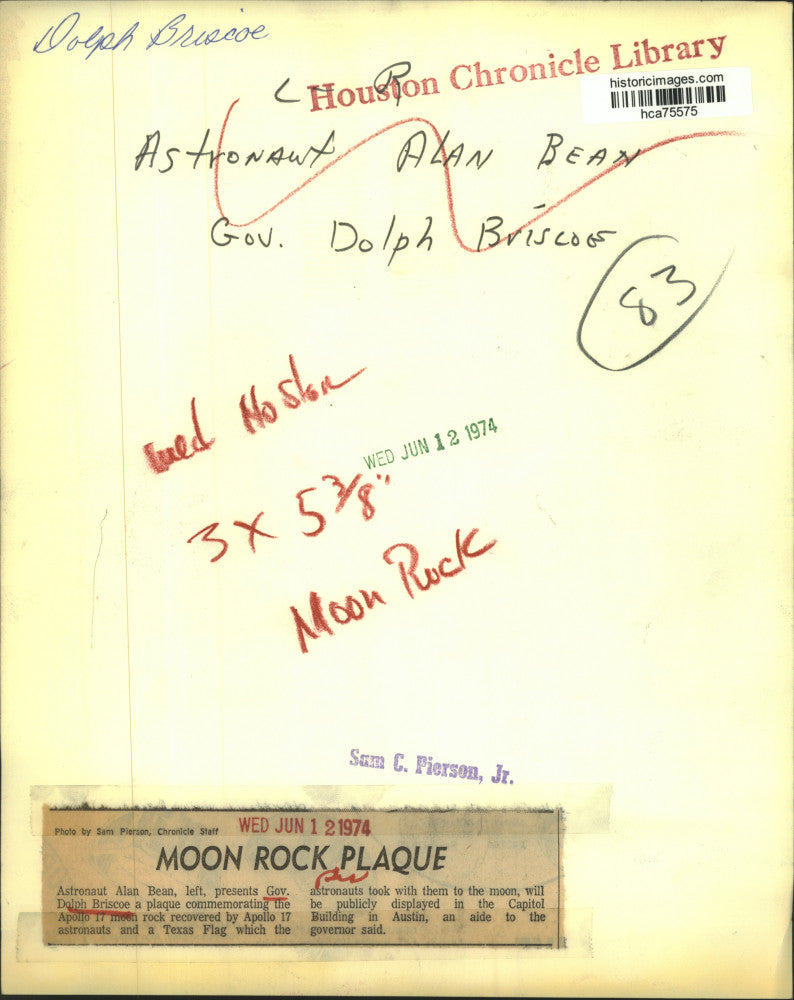 Dolph Briscoe
Houston Chronicle Library
historicimages.com
hca75575
L - R
Astronaut Alan Bean
Gov. Dolph Briscoe
83
WED JUN 12 1974
3 x 5 3/8"
Moon Rock
Sam C. Pierson, Jr.
Photo by Sam Pierson, Chronicle Staff
WED JUN 12 1974
MOON ROCK PLAQUE
Astronaut Alan Bean, left, presents Gov.
Dolph Briscoe a plaque commemorating the
Apollo 17 moon rock recovered by Apollo 17
astronauts and a Texas Flag which the
astronauts took with them to the moon, will
be publicly displayed in the Capitol
Building in Austin, an aide to the
governor said.